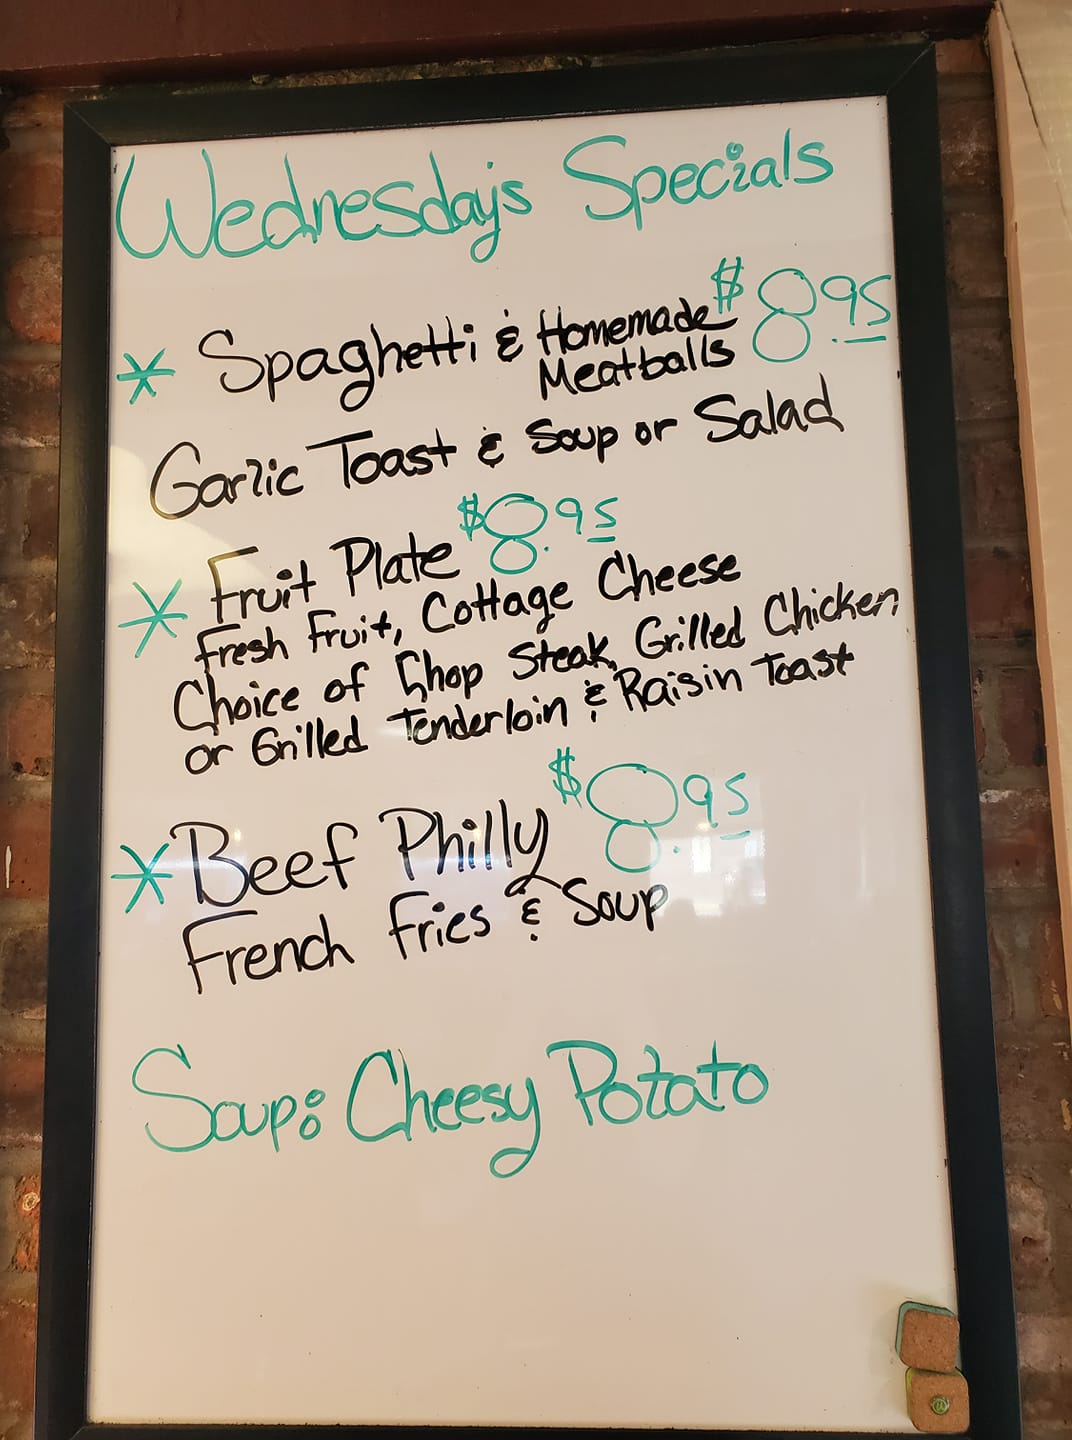 Wednesday's Specials
* Spaghetti & Homemade $8.95
Meatballs
Garlic Toast & Soup or Salad
* Fruit Plate $8.95
Fresh Fruit, Cottage Cheese
Choice of Chop Steak, Grilled Chicken
or Grilled Tenderloin & Raisin Toast
* Beef Philly $8.95
French Fries & Soup
Soup: Cheesy Potato